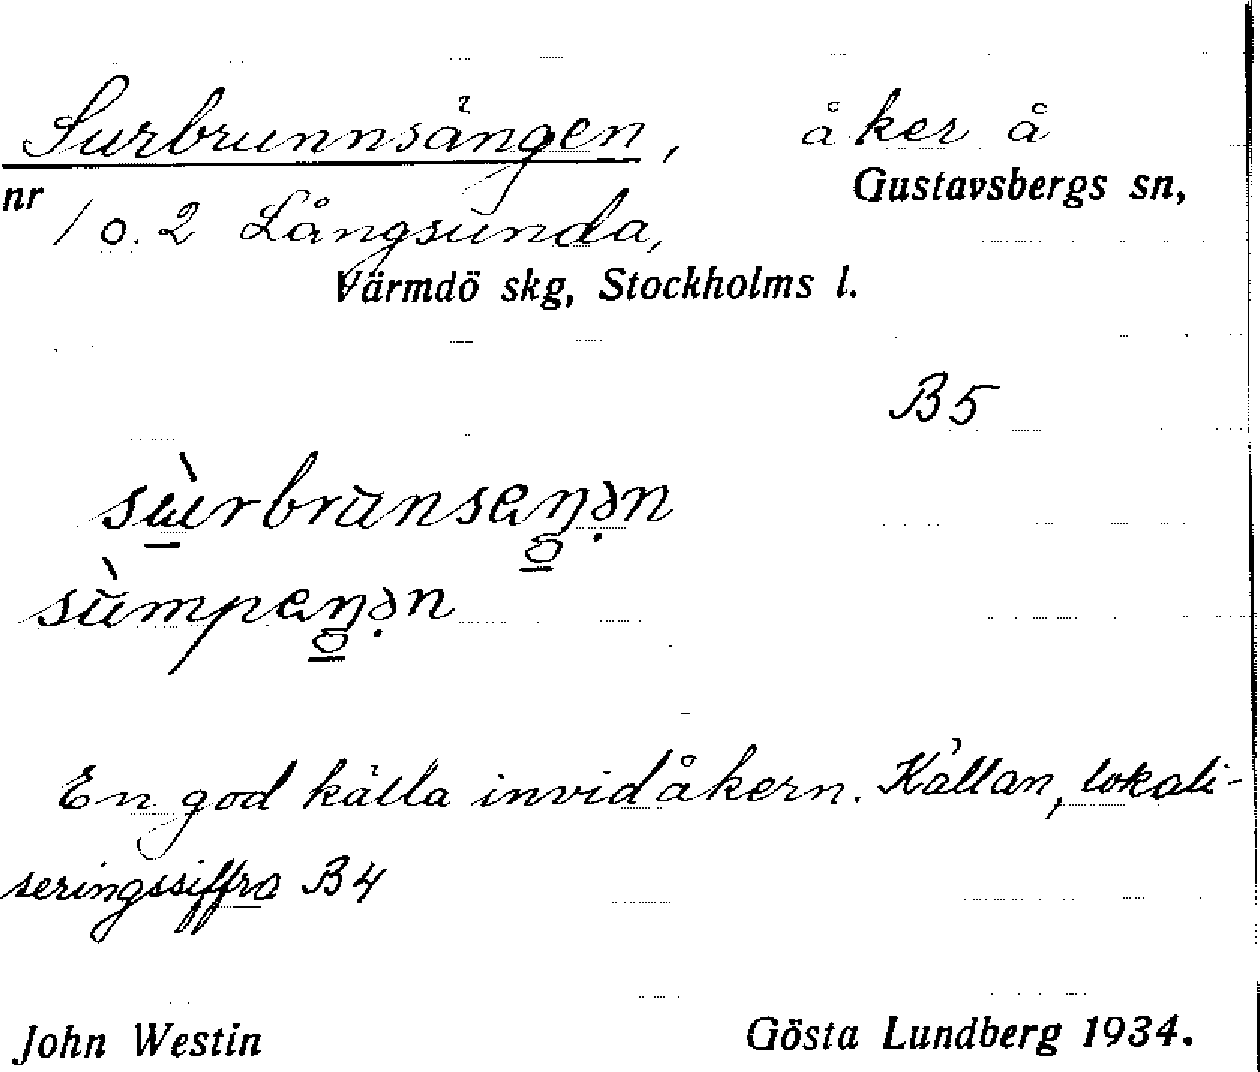 Surbrunnsängen, åker å
nr 1 o. 2 Långsunda, Gustavsbergs sn,
Värmdö skg, Stockholms l.
B5
sù̱rbrunseŋə̣n
sùmpeŋə̣n
En god källa invid åkern. Källan, lokali-
seringssiffra B4
John Westin Gösta Lundberg 1934.